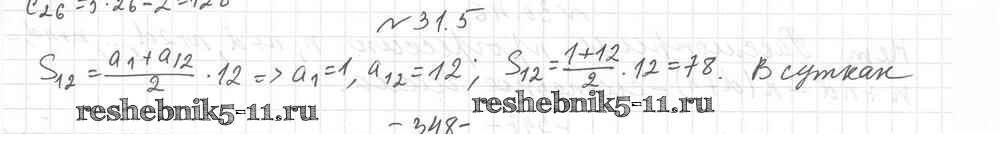 C₂₆=5·26-2=128
№31.5
S₁₂=(a₁+a₁₂)/2·12=>a₁=1, a₁₂=12; S₁₂=(1+12)/2·12=78. В сутках
reshebnik5-11.ru reshebnik5-11.ru
-348-